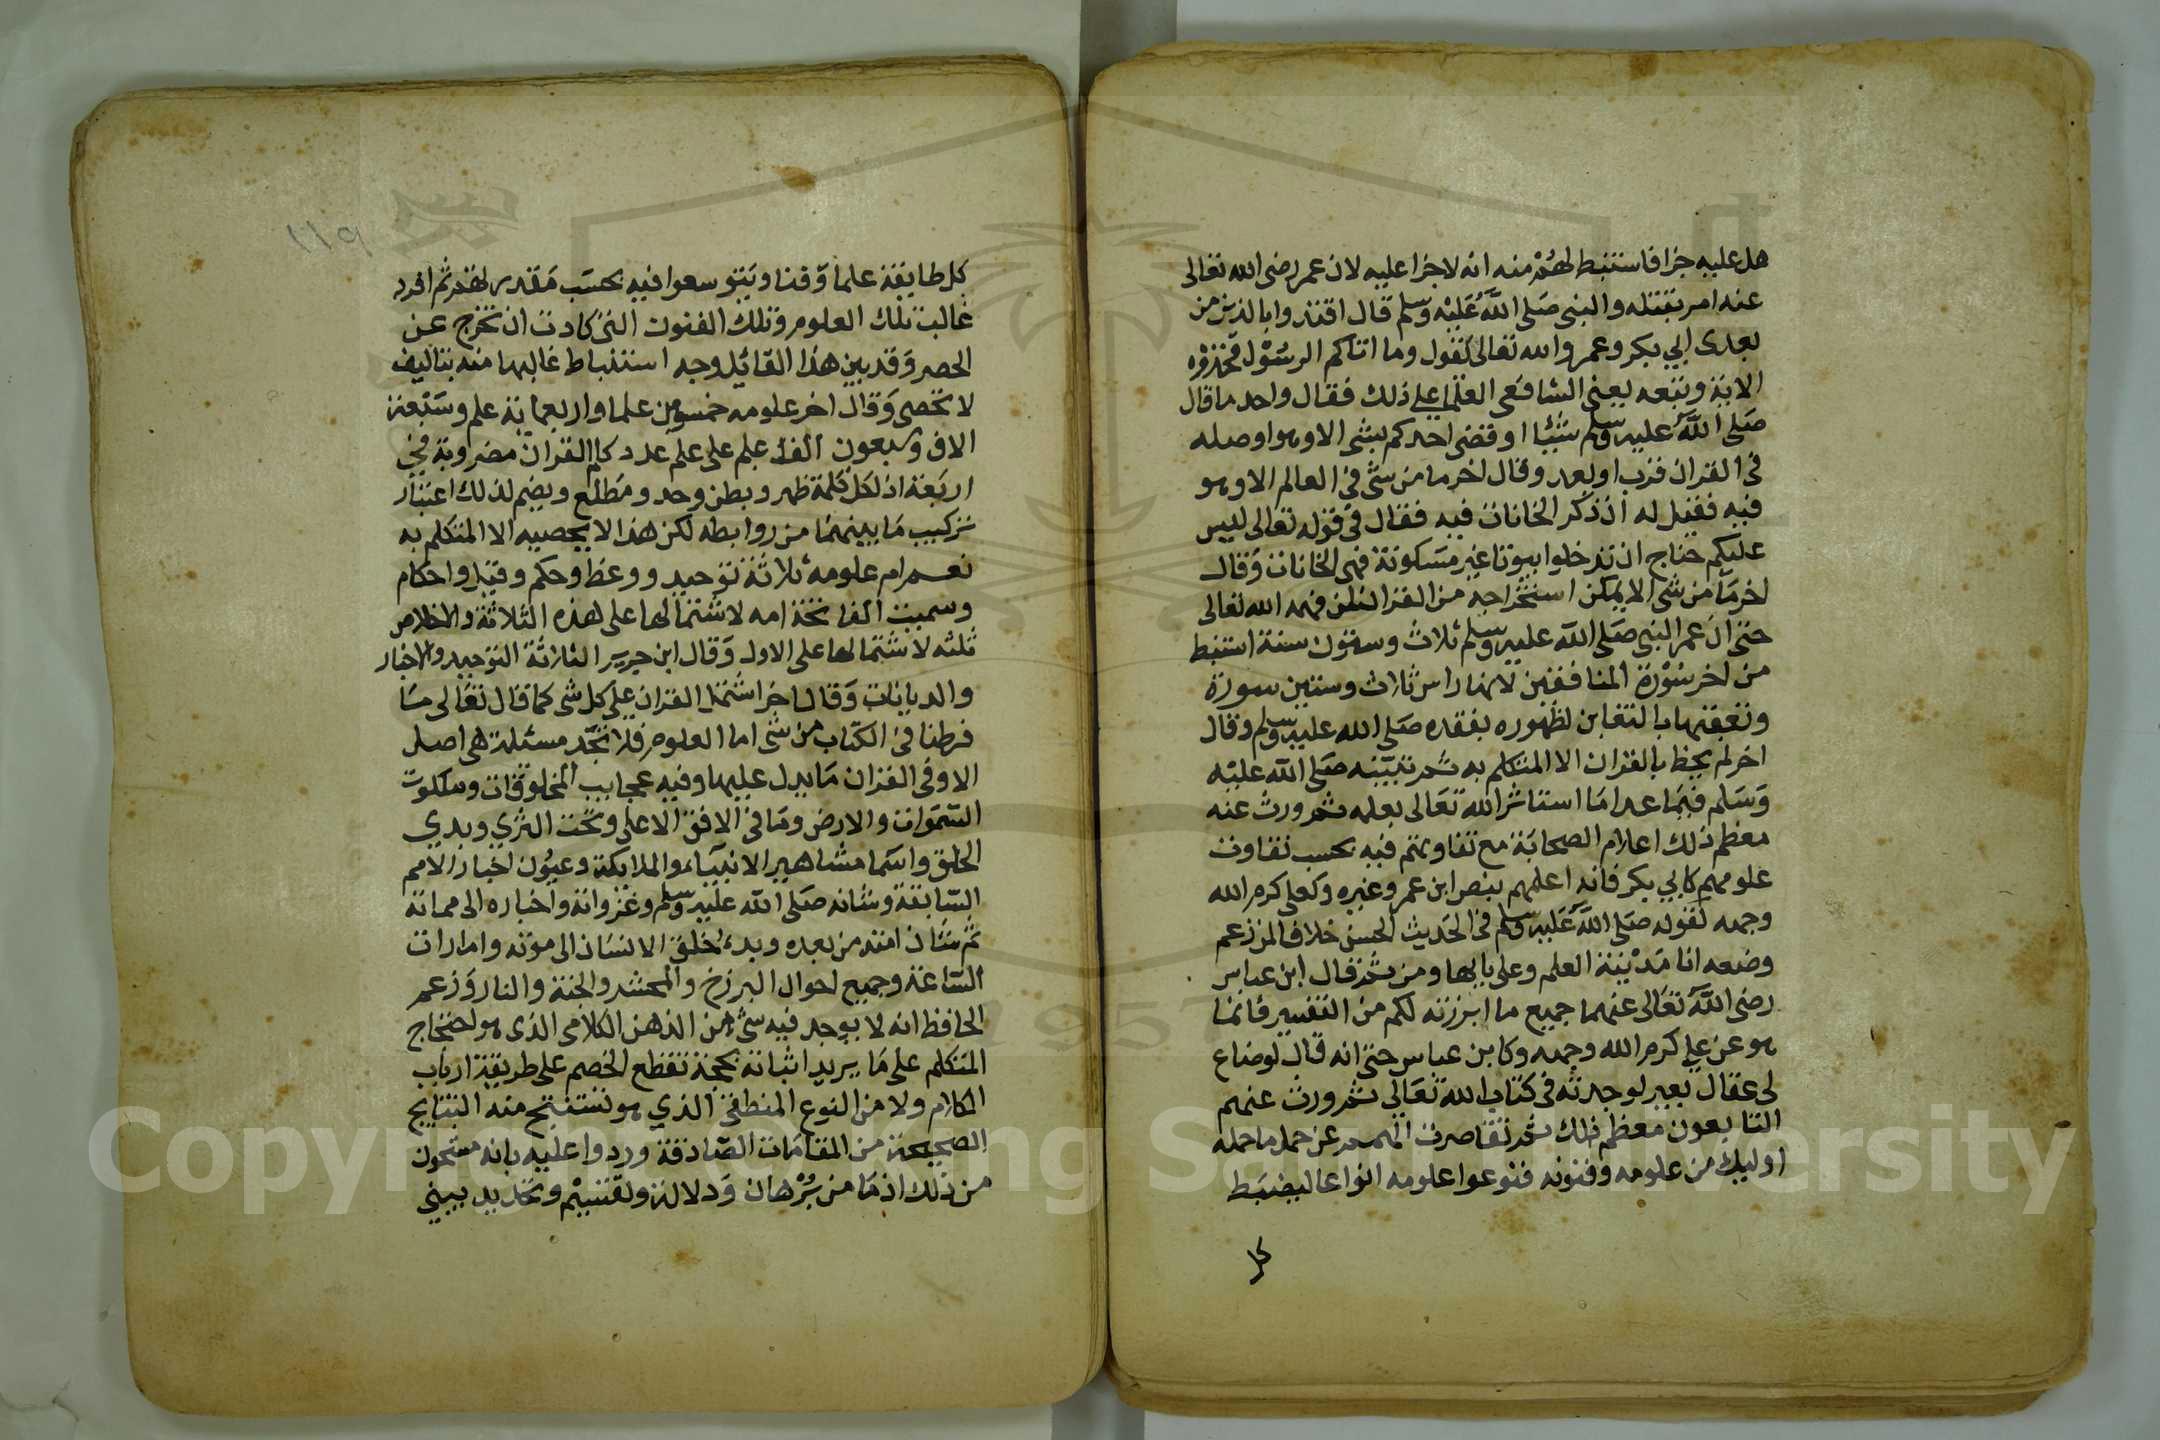 هل عليه جزا فاستنبط لهم منه انه لا جزا عليه لان عمر رضى الله تعالى
عنه امر بقتله والنبى صلى الله عليه وسلم قال اقتدوا بالذين من
بعدى ابي بكر وعمر والله تعالى يقول وما اتاكم الرسول فخذوه
الاية وتبعه يعنى الشافعى العلما على ذلك فقال واحد ما قال
صلى الله عليه وسلم شيئا او قضى احدكم بشى الا وهو او صله
فى القران قرب او بعد وقال اخر ما من شى في العالم الا وهو
فيه فقيل له اذ ذكر الخانات فيه فقال في قوله تعالى ليس
عليكم جناح ان تدخلوا بيوتا غير مسكونة فهى الخانات وقال
اخر ما من شى الا يمكن استخراجه من القران لمن فهمه الله تعالى
حتى ان عمر النبى صلى الله عليه وسلم ثلاث وستون سنة استنبط
من اخر سورة المنافقين لانها راس ثلاث وستين سورة
وتعقبها بالتغابن لظهوره بفقده صلى الله عليه وسلم وقال
اخر لم يحط بالقران الا المتكلم به ثم نبيه صلى الله عليه
وسلم فيما عدا ما استاثر الله تعالى بعلمه ثم ورث عنه
معظم ذلك اعلام الصحابة مع تفاوتهم فيه بحسب تفاوت
علومهم كابي بكر فانه اعلمهم بنص ابن عمر وغيره وكعلى كرم الله
وجهه لقوله صلى الله عليه وسلم فى الحديث الحسن خلافا لمن زعم
وضعه انا مدينة العلم وعلى بابها ومن ثم قال ابن عباس
رضى الله تعالى عنهما جميع ما ابرزته لكم من التفسير فانما
هو عن علي كرم الله وجهه وكابن عباس حتى انه قال لو ضاع
لى عقال بعير لوجدته فى كتاب الله تعالى ثم ورث عنهم
التابعون معظم ذلك ثم تقاصرت الهمم عن حمل ما حمله
اوليك من علومه وفنونه فنوعوا علومه انواعا ليضبط
كل
١١٩
كل طايفة علما وفنا ويتوسعوا فيه بحسب مقدرتهم ثم افرد
غالب تلك العلوم وتلك الفنون التى كادت ان تخرج عن
الحصر وقد بين هذا القائل وجه استنباط غالبها منه بتاليف
لا تحصى وقال اخر علومه خمسون علما واربعماية علم وسبعة
الاف وسبعون الف علم على علم عدد كلم القران مضروبة في
اربعة اذ لكل كلمة ظهر وبطن وحد ومطلع ويضم لذلك اعتبار
تركيب ما بينهما من روابطه لكن هذا لا يحصيه الا المتكلم به
نعم ام علومه ثلاثة توحيد ووعظ وحكم وقيل واحكام
وسميت الفاتحة امه لاشتمالها على هذه الثلاثة والاخلاص
ثلثه لاشتمالها على الاول وقال ابن جرير الثلاثة التوحيد والاخبار
والديانات وقال اخر اشتمل القران على كل شى كما قال تعالى ما
فرطنا فى الكتاب من شى اما العلوم فلا تجد مسئلة هى اصل
الا وفى القران ما يدل عليها وفيه عجايب المخلوقات وملكوت
السموات والارض وما فى الافق الاعلى وتحت الثرى وبدي
الخلق واسما مشاهير الانبياء والملايكة وعيون اخبار الامم
السابقة وشانه صلى الله عليه وسلم وغزواته واخباره الى مماته
ثم شان امته من بعده وبدء خلق الانسان الى موته وامارات
الساعة وجميع احوال البرزخ والمحشر والجنة والنار وزعم
الحافظ انه لا يوجد فيه شى من الذهن الكلامى الذى هو احتجاج
المتكلم على ما يريد اثباته بحجة تقطع الخصم على طريقة ارباب
الكلام ولا من النوع المنطقى الذي هو تستنتج منه النتايج
الصحيحة من المقامات الصادقة وردوا عليه بانه مشحون
من ذلك اذ ما من برهان ودلالة وتقسيم وتحديد يبنى